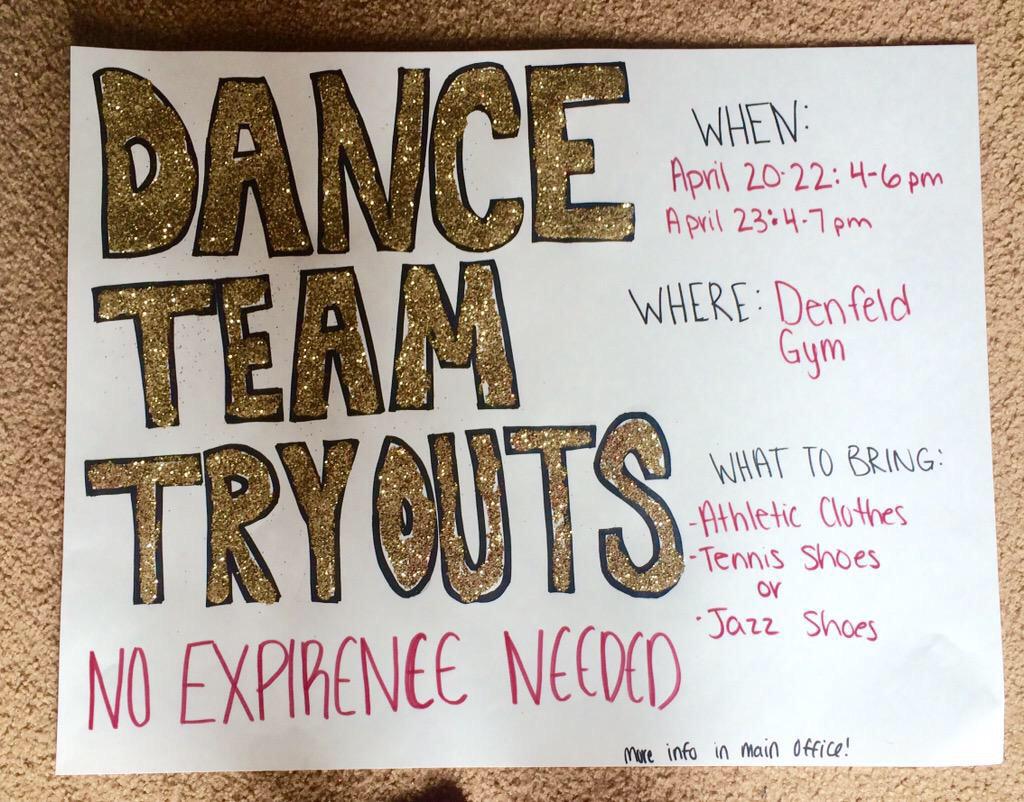 DANCE
TEAM
TRYOUTS
NO EXPIRENCE NEEDED
WHEN:
April 20-22: 4-6pm
April 23: 4-7pm
WHERE: Denfeld
Gym
WHAT TO BRING:
-Athletic Clothes
-Tennis Shoes
or
-Jazz Shoes
More info in main office!